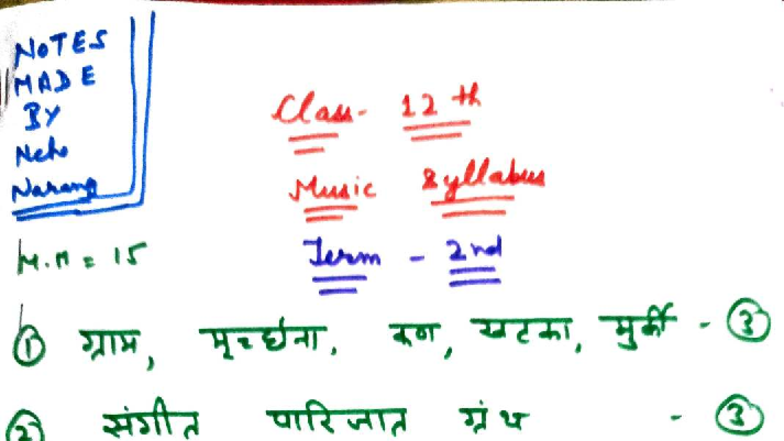 NOTES
MADE
BY
Neha
Narang
Class- 12th
Music Syllabus
Term - 2nd
M.M = 15
① ग्राम, मूर्च्छना, कण, खटका, मुर्की - ③
② संगीत पारिजात ग्रंथ - ③